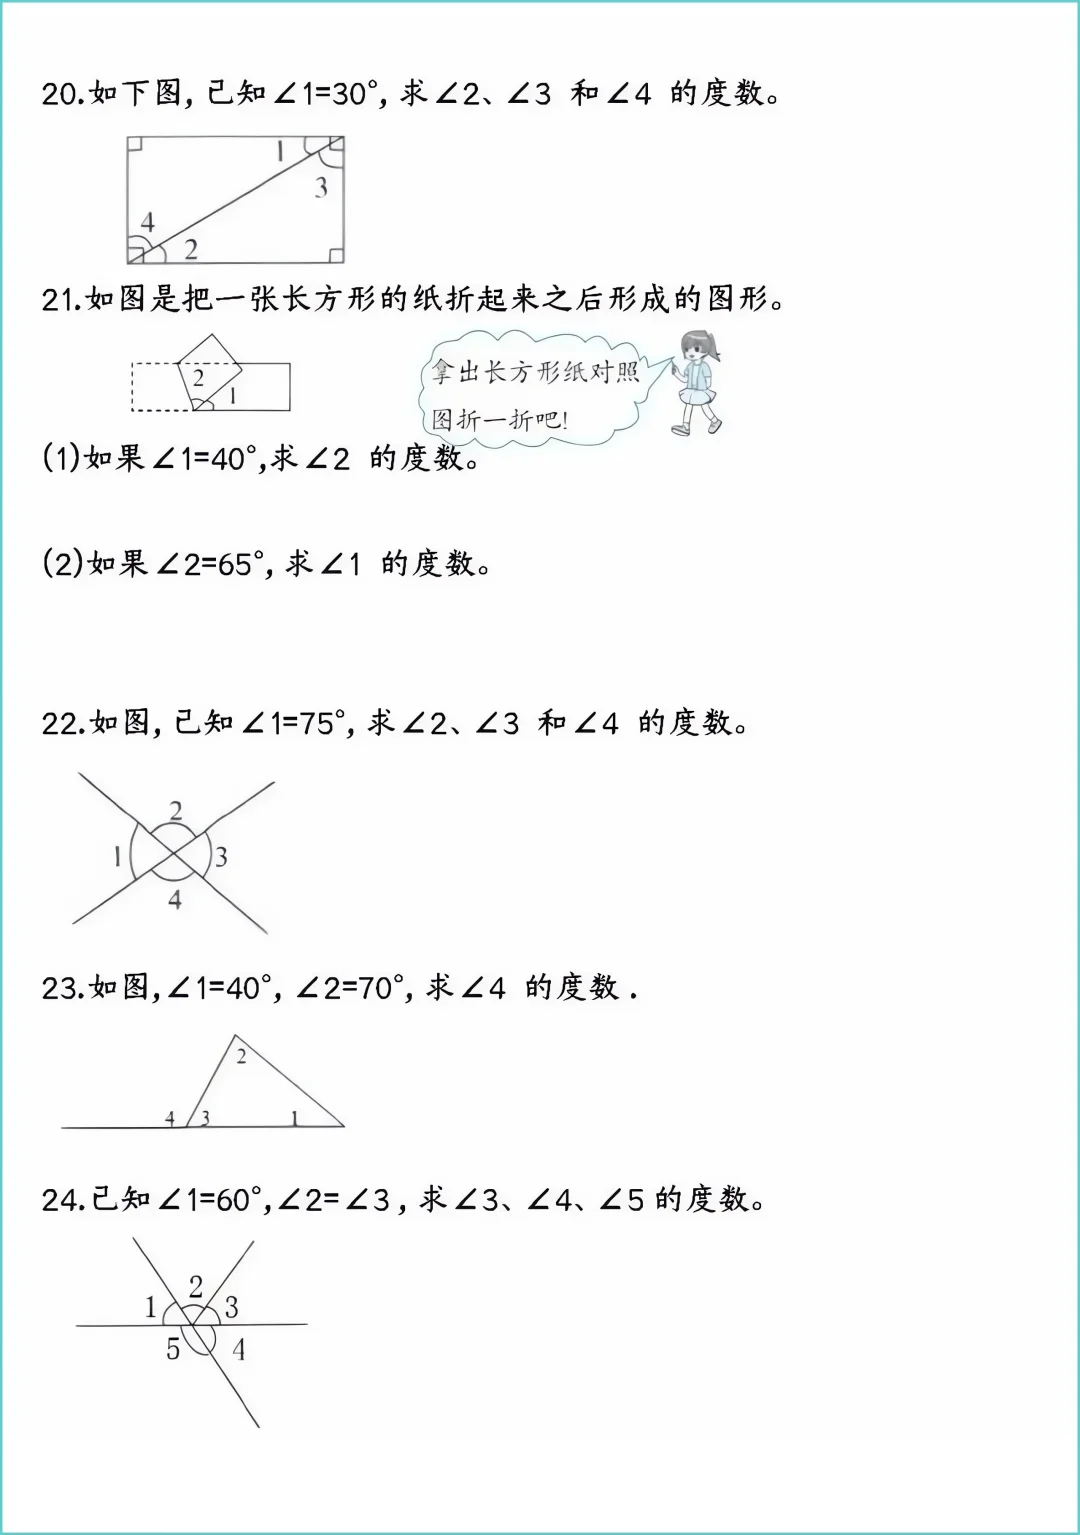 20.如下图,已知∠1=30°,求∠2、∠3 和∠4 的度数。
1
3
4
2
21.如图是把一张长方形的纸折起来之后形成的图形。
2
1
拿出长方形纸对照
图折一折吧!
(1)如果∠1=40°,求∠2 的度数。
(2)如果∠2=65°,求∠1 的度数。
22.如图,已知∠1=75°,求∠2、∠3 和∠4 的度数。
2
1
3
4
23.如图,∠1=40°,∠2=70°,求∠4 的度数.
2
4 3 1
24.已知∠1=60°,∠2=∠3,求∠3、∠4、∠5的度数。
2
1 3
5 4